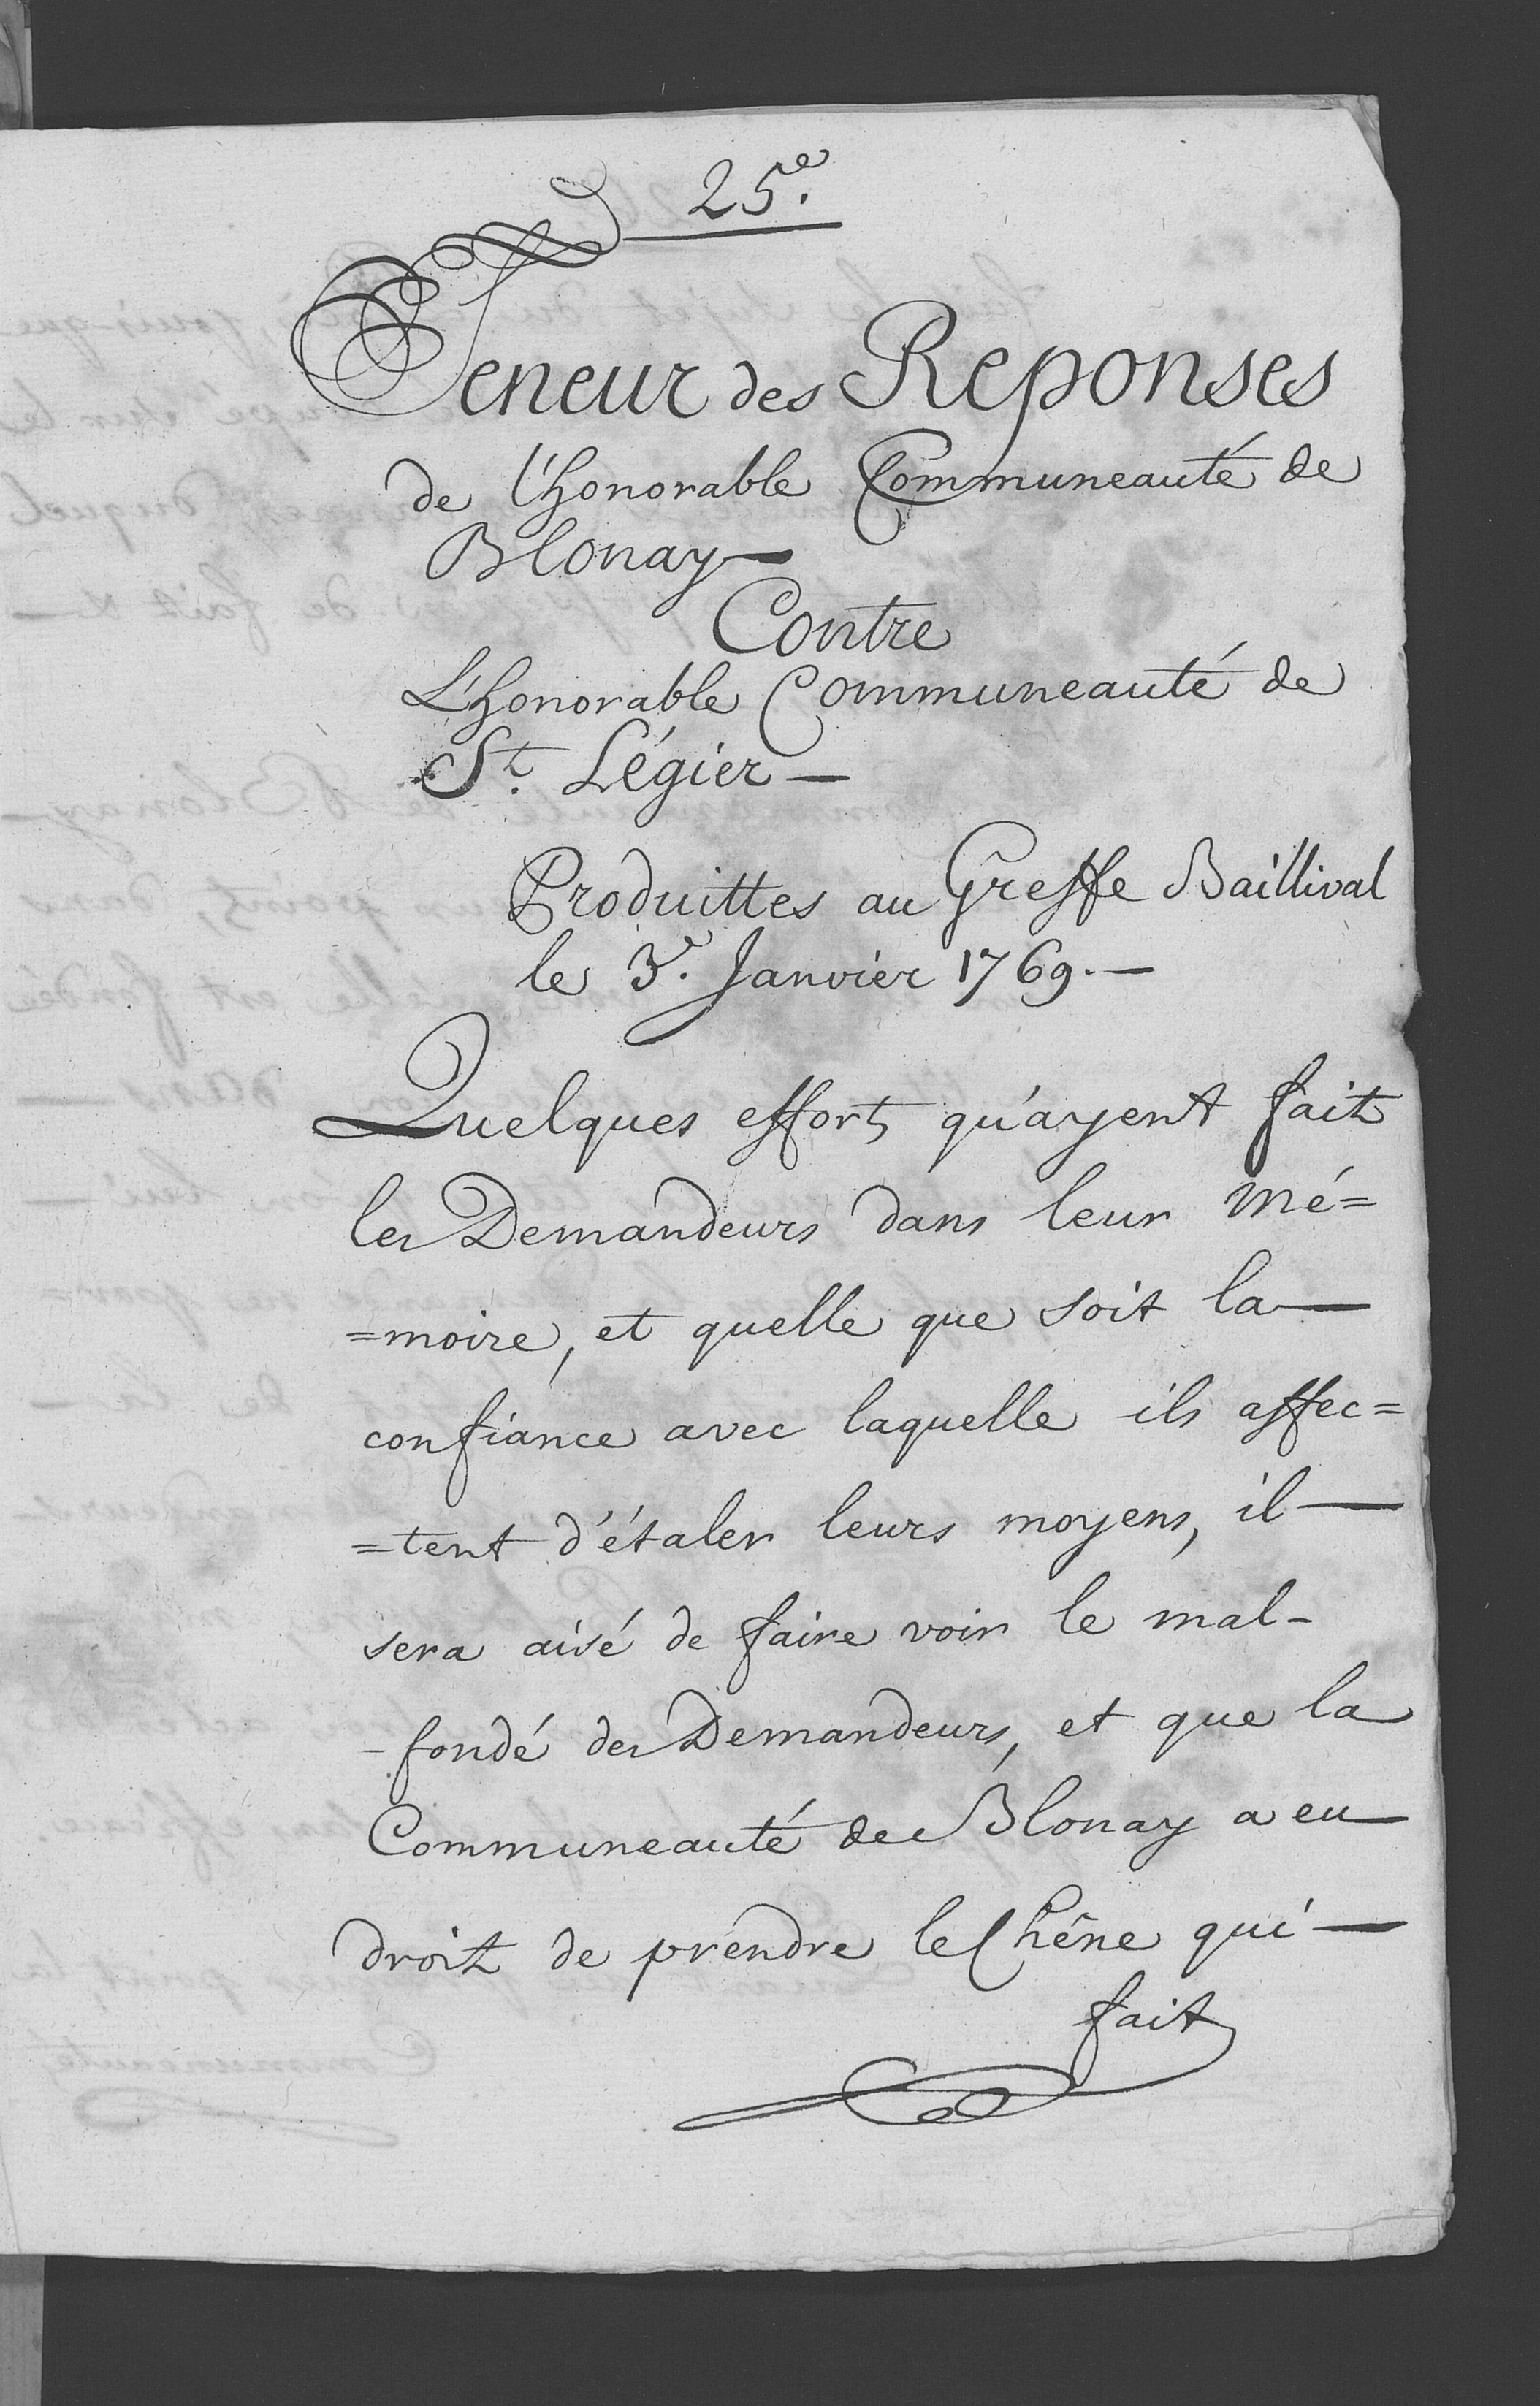 25e.
Teneur des Reponses
de l'honorable Communeauté de
Blonay—
Contre
L'honorable Communeauté de
St. Légier—
Produittes au Greffe Baillival
le 3e. Janvier 1769.—
Quelques effort qu'ayent fait
les Demandeurs dans leur mé=
=moire, et quelle que soit la—
confiance avec laquelle ils affec=
=tent d'étaler leurs moyens, il—
sera aisé de faire voir le mal-
-fondé des Demandeurs, et que la
Communeauté de Blonay a eu—
droit de prendre le Chêne qui—
fait